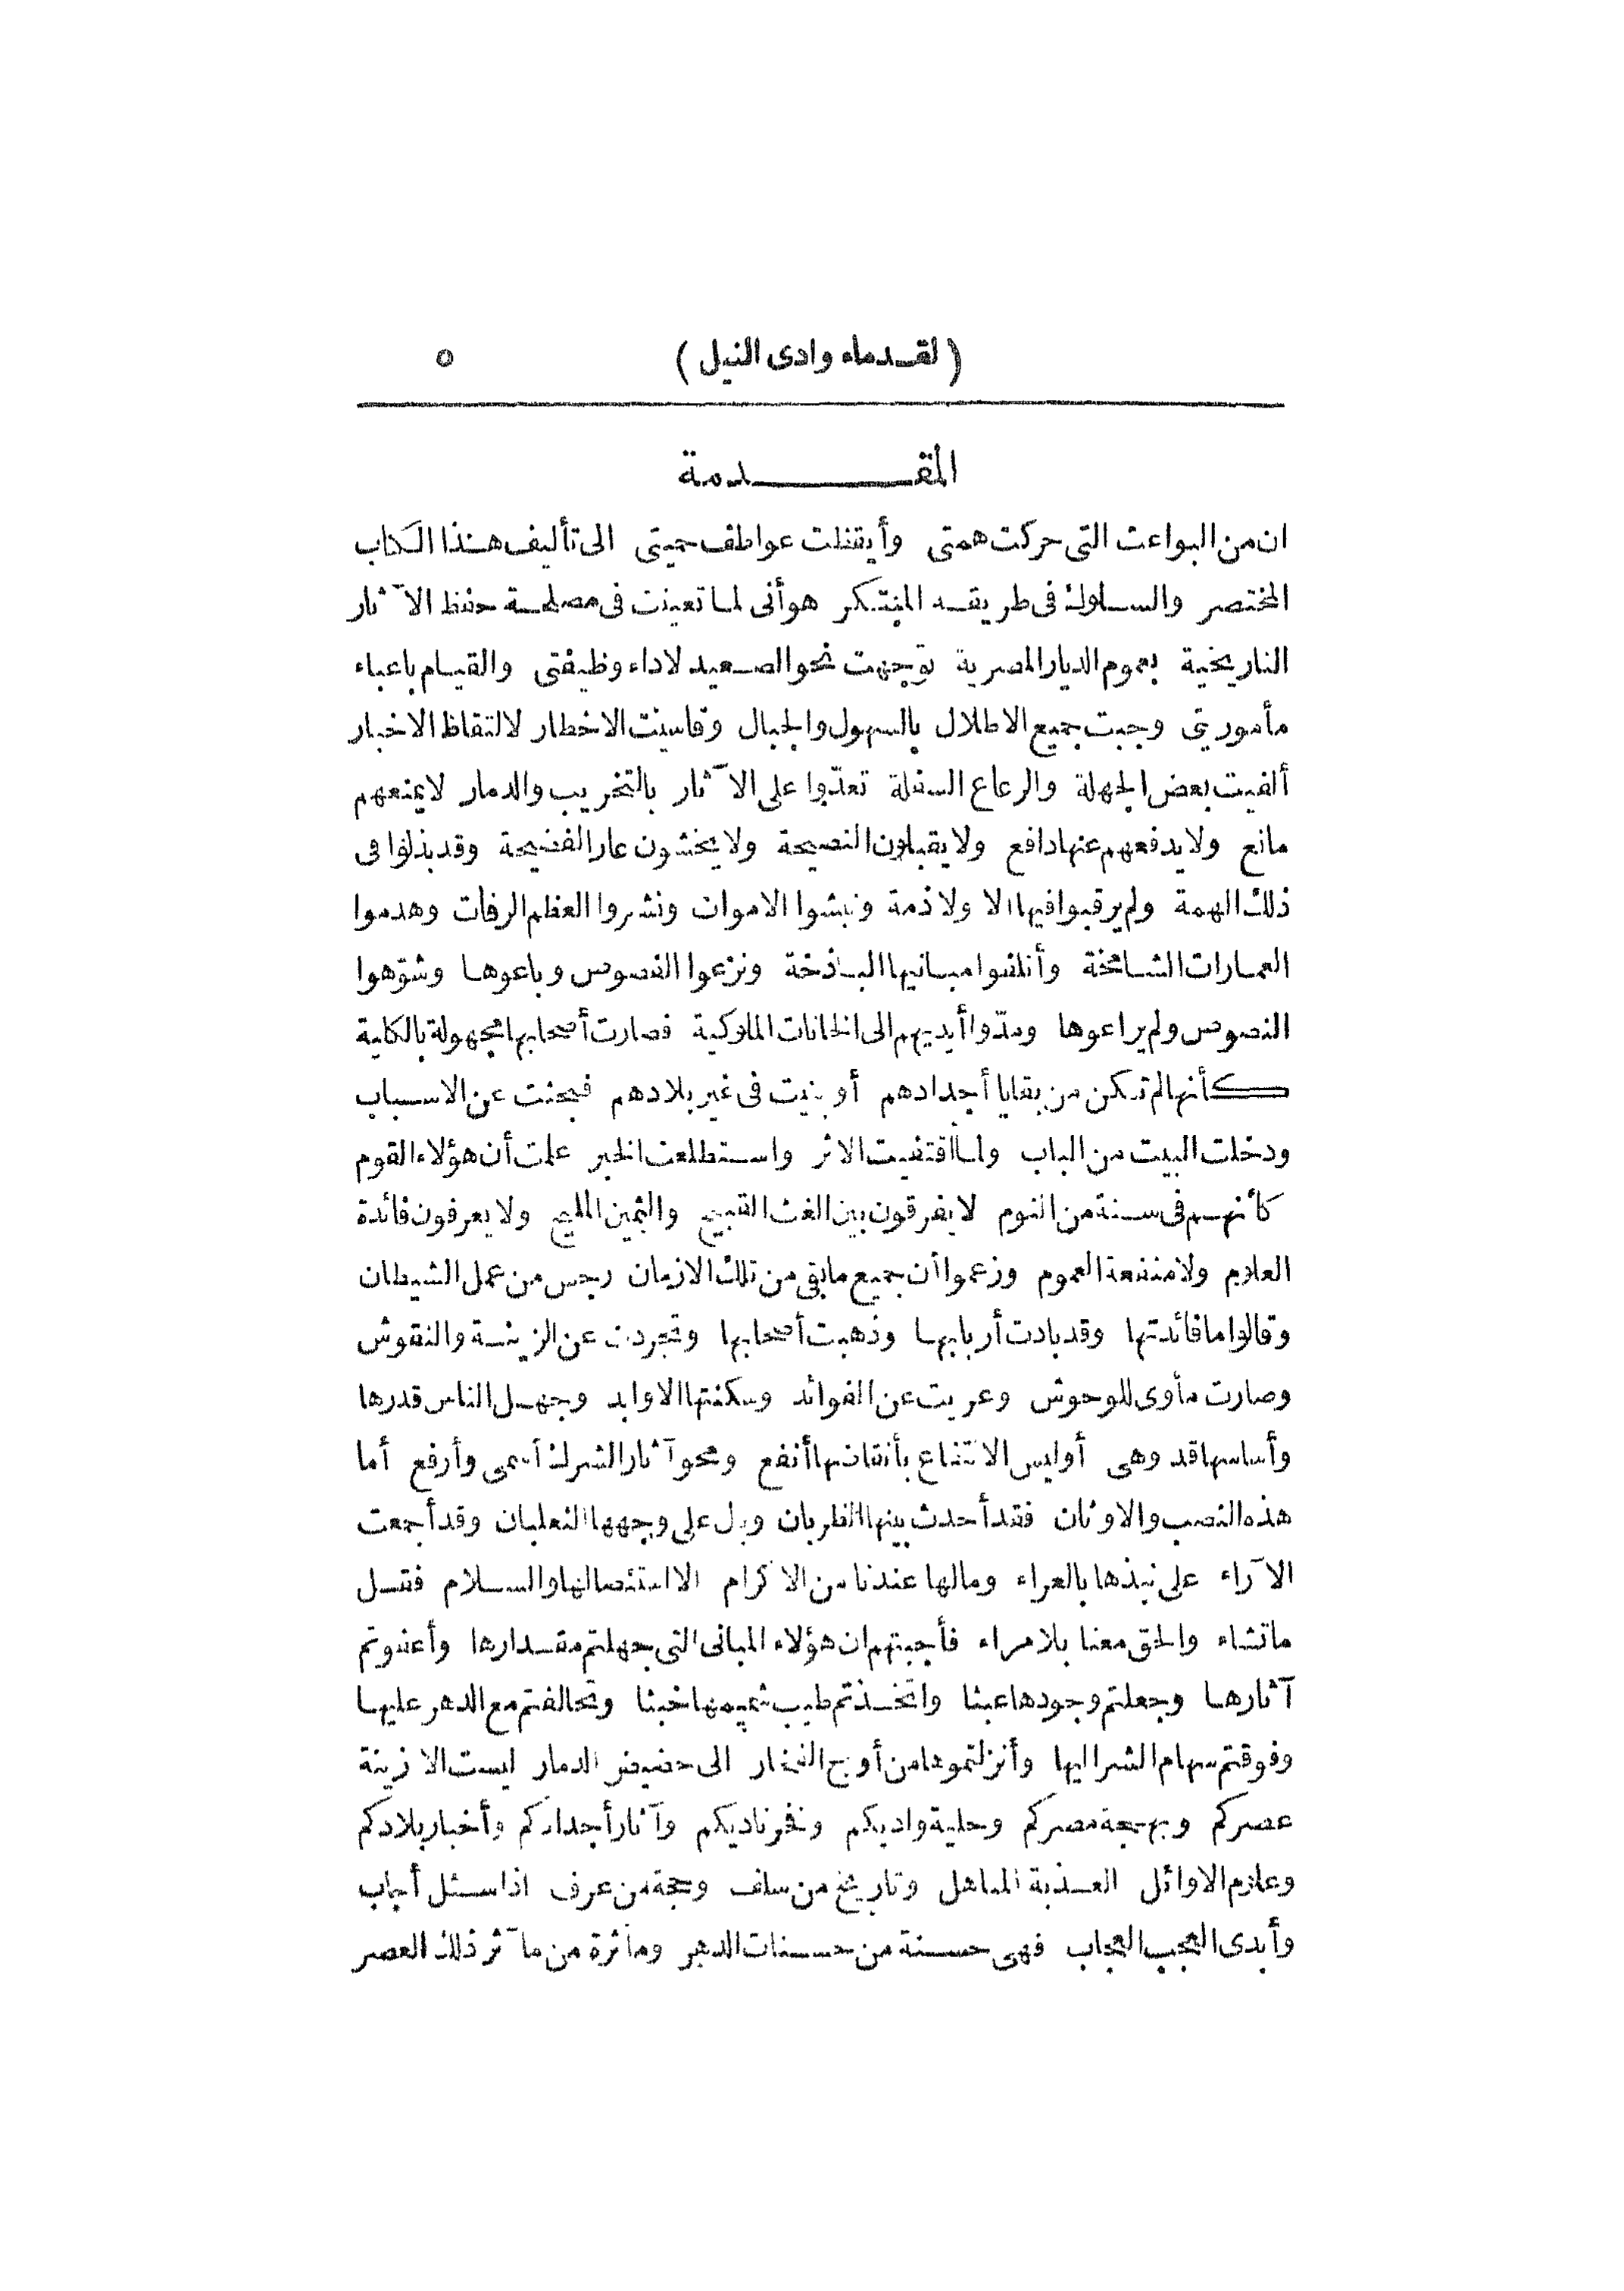 ( لقدماء وادى النيل ) ٥
المقدمة
ان من البواعث التى حركت همتى وأيقظت عواطف حميتى الى تأليف هذا الكتاب
المختصر والسلوك فى طريقه المبتكر هو أنى لما تعينت فى مصلحة حفظ الآثار
التاريخية بعموم الديار المصرية توجهت نحو الصعيد لاداء وظيفتى والقيام باعباء
مأموريتى وجبت جميع الاطلال بالسهول والجبال وقاسيت الاخطار لالتقاط الاخبار
ألفيت بعض الجهلة والرعاع السفلة تعدّوا على الآثار بالتخريب والدمار لا يمنعهم
مانع ولا يدفعهم عنها دافع ولا يقبلون النصيحة ولا يخشون عار الفضيحة وقد بذلوا فى
ذلك الهمة ولم يرقبوا فيها الا ولا ذمة ونبشوا الاموات ونشروا العظم الرفات وهدموا
العمارات الشامخة وأتلفوا مبانيها الباذخة ونزعوا الفصوص وباعوها وشوّهوا
النصوص ولم يراعوها ومدّوا أيديهم الى الخانات الملوكية فصارت أصحابها مجهولة بالكلية
كأنها لم تكن من بقايا أجدادهم أو بنيت فى غير بلادهم فبحثت عن الاسباب
ودخلت البيت من الباب ولما اقتفيت الاثر واستطلعت الخبر علمت أن هؤلاء القوم
كأنهم فى سنة من النوم لا يفرقون بين الغث القبيح والثمين المليح ولا يعرفون فائدة
العلوم ولا منفعة العموم وزعموا أن جميع ما بقى من تلك الازمان رجس من عمل الشيطان
وقالوا ما فائدتها وقد بادت أربابها وذهبت أصحابها وتجردت عن الزينة والنقوش
وصارت مأوى للوحوش وعريت عن الفوائد وسكنتها الاوابد وجهل الناس قدرها
وأساسها قد وهى أوليس الانتفاع بأنقاضها أنفع ومحو آثار الشرك أسمى وأرفع أما
هذه النصب والاوثان فقد أحدث بينها الظربان وبال على وجهها الثعلبان وقد أجمعت
الآراء على نبذها بالعراء وما لها عندنا من الاكرام الا استئصالها والسلام فقل
ما تشاء والحق معنا بلا مراء فأجبتهم ان هؤلاء المبانى التى جهلتم مقدارها وأعفوتم
آثارها وجعلتم وجودها عبثا واتخذتم طيب شميمها خبثا وتحالفتم مع الدهر عليها
وفوقتم سهام الشر اليها وأنزلتموها من أوج الفخار الى حضيض الدمار ليست الا زينة
عصركم وبهجة مصركم وحلية واديكم وفخر ناديكم وآثار أجدادكم وأخبار بلادكم
وعلوم الاوائل العذبة المناهل وتاريخ من سلف وحجة من عرف اذا سئل أجاب
وأبدى العجب العجاب فهى حسنة من حسنات الدهر ومأثرة من مآثر ذلك العصر